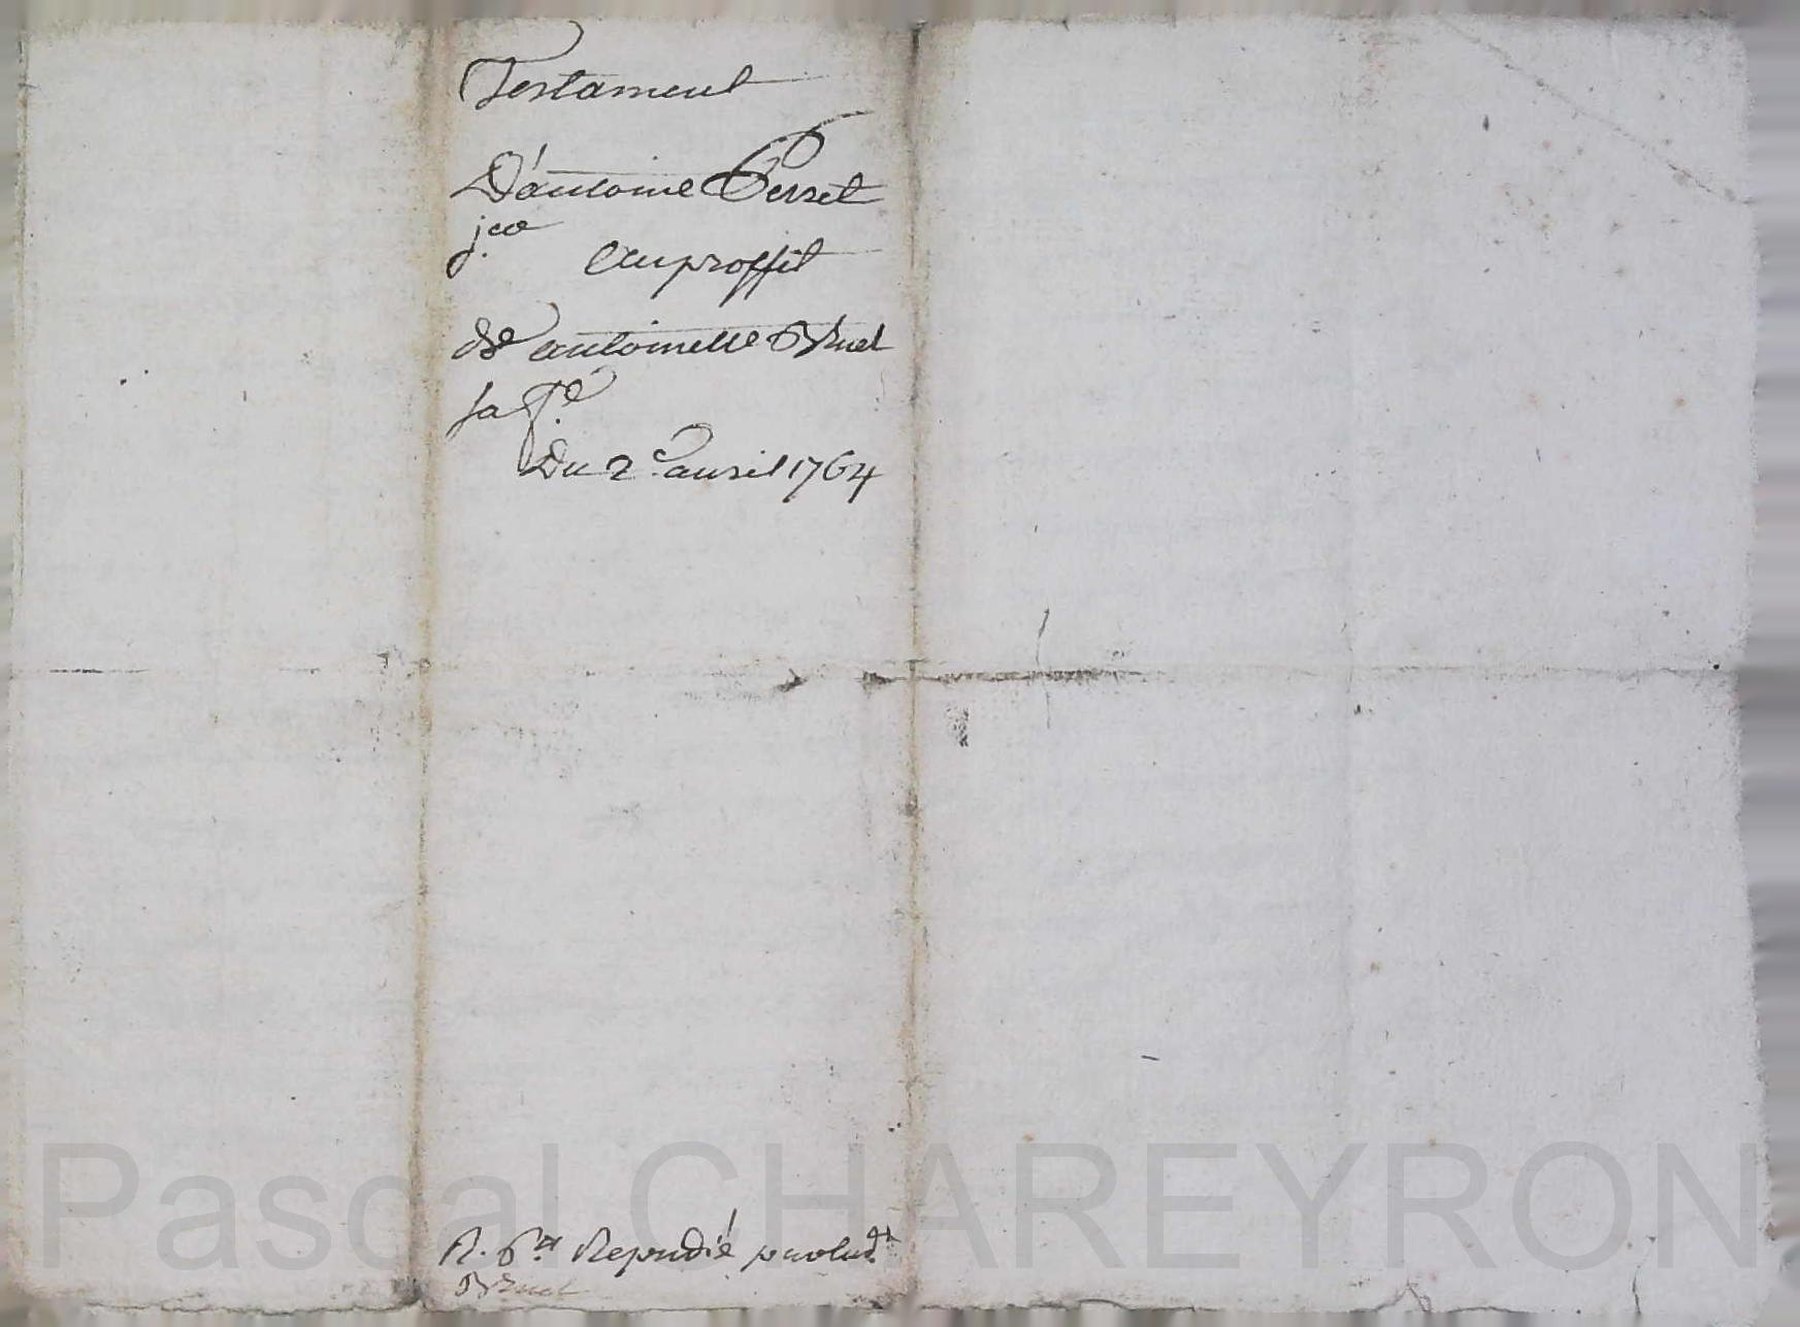 Testament
D'antoine Perset
j.ne
au proffit
de antoinette Bruel
sa f.e
Du 2.e auril 1764
R. Repudié par
Bruel
Pascal CHAREYRON